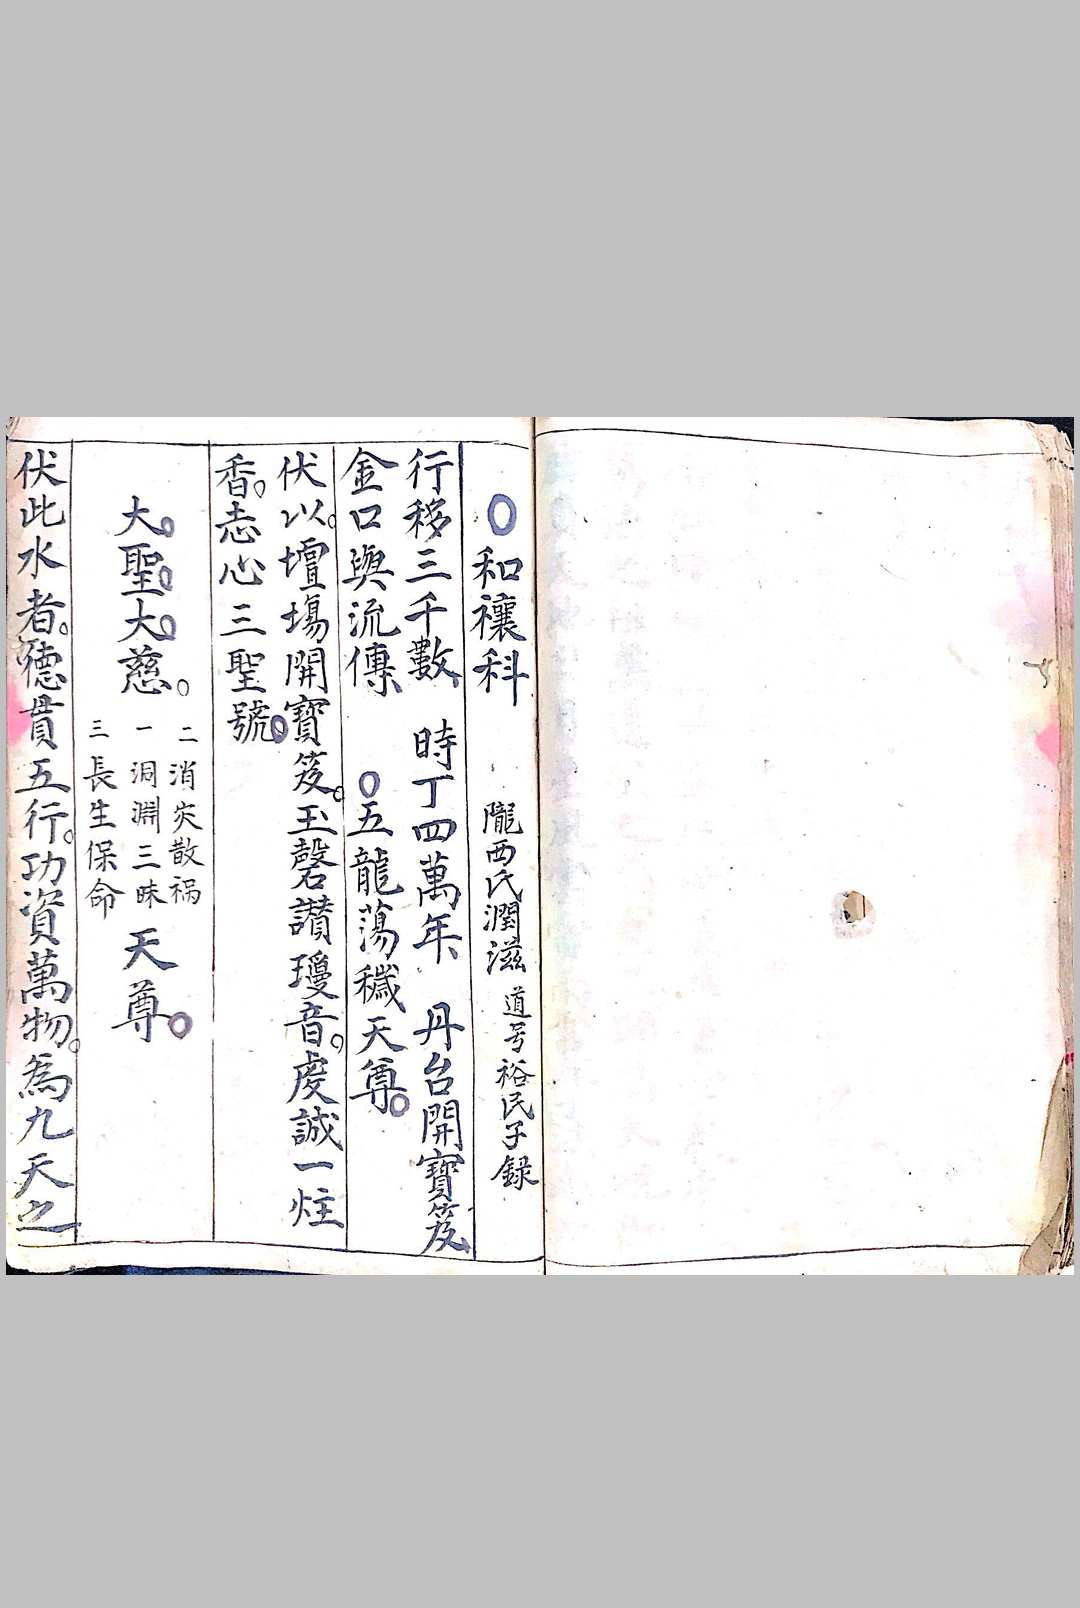 ○和禳科　隴西氏潤滋　道号裕民子録
行移三千數　時丁四萬年　丹台開寶笈
金口與流傳　○五龍蕩穢天尊○
伏以。壇場開寶笈。玉磬讃瓊音。虔誠一炷
香。志心三聖號。
大。聖。大。慈。
二消灾散禍
一洞淵三昧
三長生保命
天尊○
伏此水者。德貫五行。功資萬物。為九天之